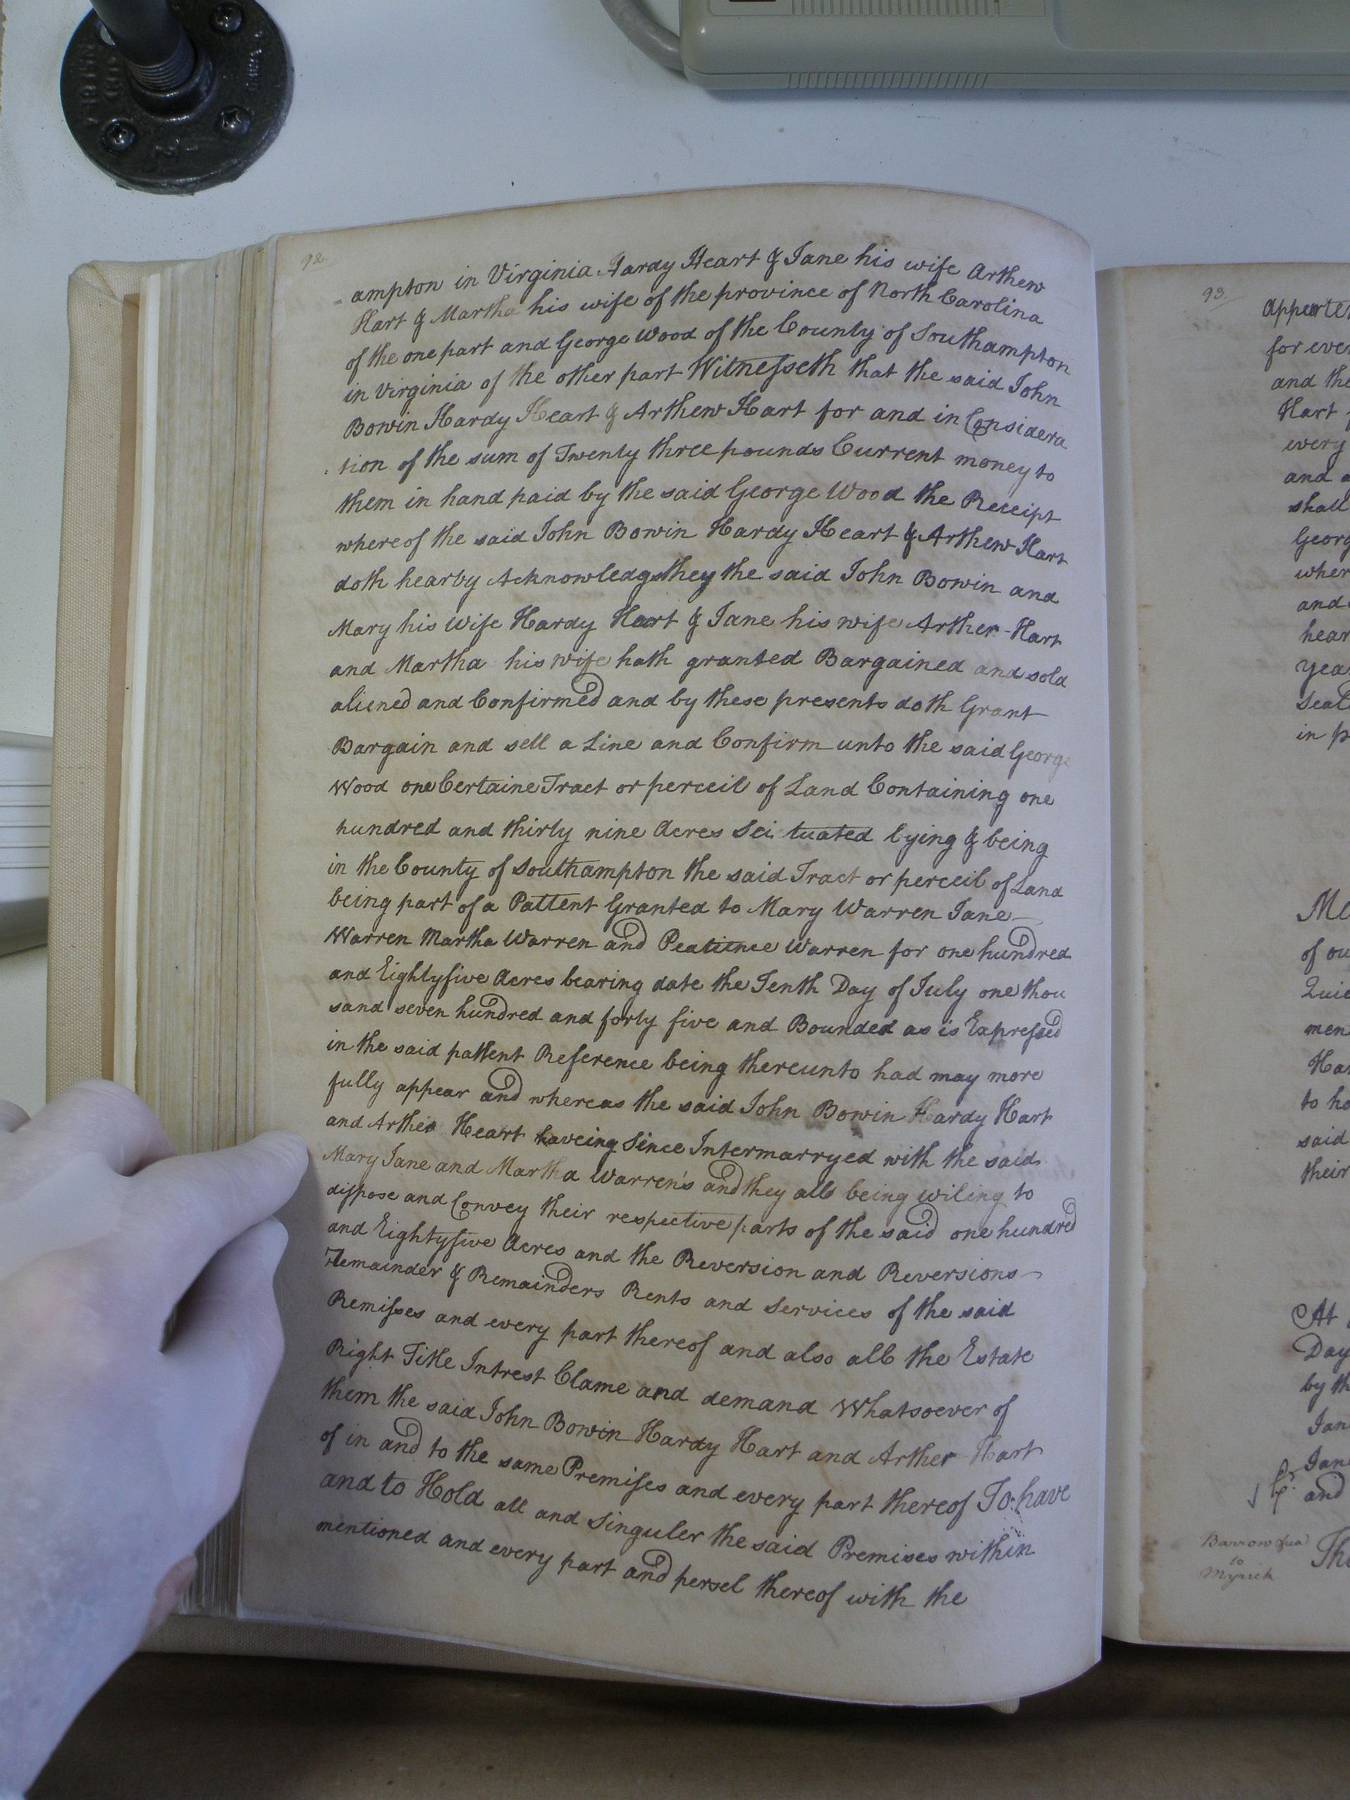 92
ampton in Virginia Hardy Heart & Jane his wife Arthew
Hart & Martha his wife of the province of North Carolina
of the one part and George Wood of the County of Southampton
in Virginia of the other part Witnesseth that the said John
Bowin Hardy Heart & Arthew Hart for and in Considera
tion of the sum of Twenty three pounds Current money to
them in hand paid by the said George Wood the Receipt
whereof the said John Bowin Hardy Heart & Arthew Hart
doth hearby Acknowledg they the said John Bowin and
Mary his Wife Hardy Hart & Jane his wife Arther Hart
and Martha his wife hath granted Bargained and sold
aliened and Confirmed and by these presents doth Grant
Bargain and sell a Line and Confirm unto the said George
Wood one Certaine Tract or perceil of Land Containing one
hundred and thirty nine Acres Sci tuated lying & being
in the County of Southampton the said Tract or perceil of Land
being part of a Pattent Granted to Mary Warren Jane
Warren Martha Warren and Peatience Warren for one hundred
and Eightyfive Acres bearing date the Tenth Day of July one thou
sand seven hundred and forty five and Bounded as is Expressed
in the said pattent Reference being thereunto had may more
fully appear and whereas the said John Bowin Hardy Hart
and Arther Heart haveing Since Intermarryed with the said
Mary Jane and Martha Warren's and they all being wiling to
dispose and Convey their respective parts of the said one hundred
and Eightyfive Acres and the Reversion and Reversions
Remainder & Remainders Rents and Services of the said
Remisses and every part thereof and also all the Estate
Right Title Intrest Clame and demand Whatsoever of
them the said John Bowin Hardy Hart and Arther Hart
of in and to the same Premisses and every part thereof To have
and to Hold all and Singuler the said Premises within
mentioned and every part and persel thereof with the
93
for ever
and the
Hart
every
and
shall
Georg
wher
and
hear
Year
Seal
in p
of ou
men
Har
to ho
said
their
At
Day
by th
Jan
Jan
and
Barrow
to
Myrick